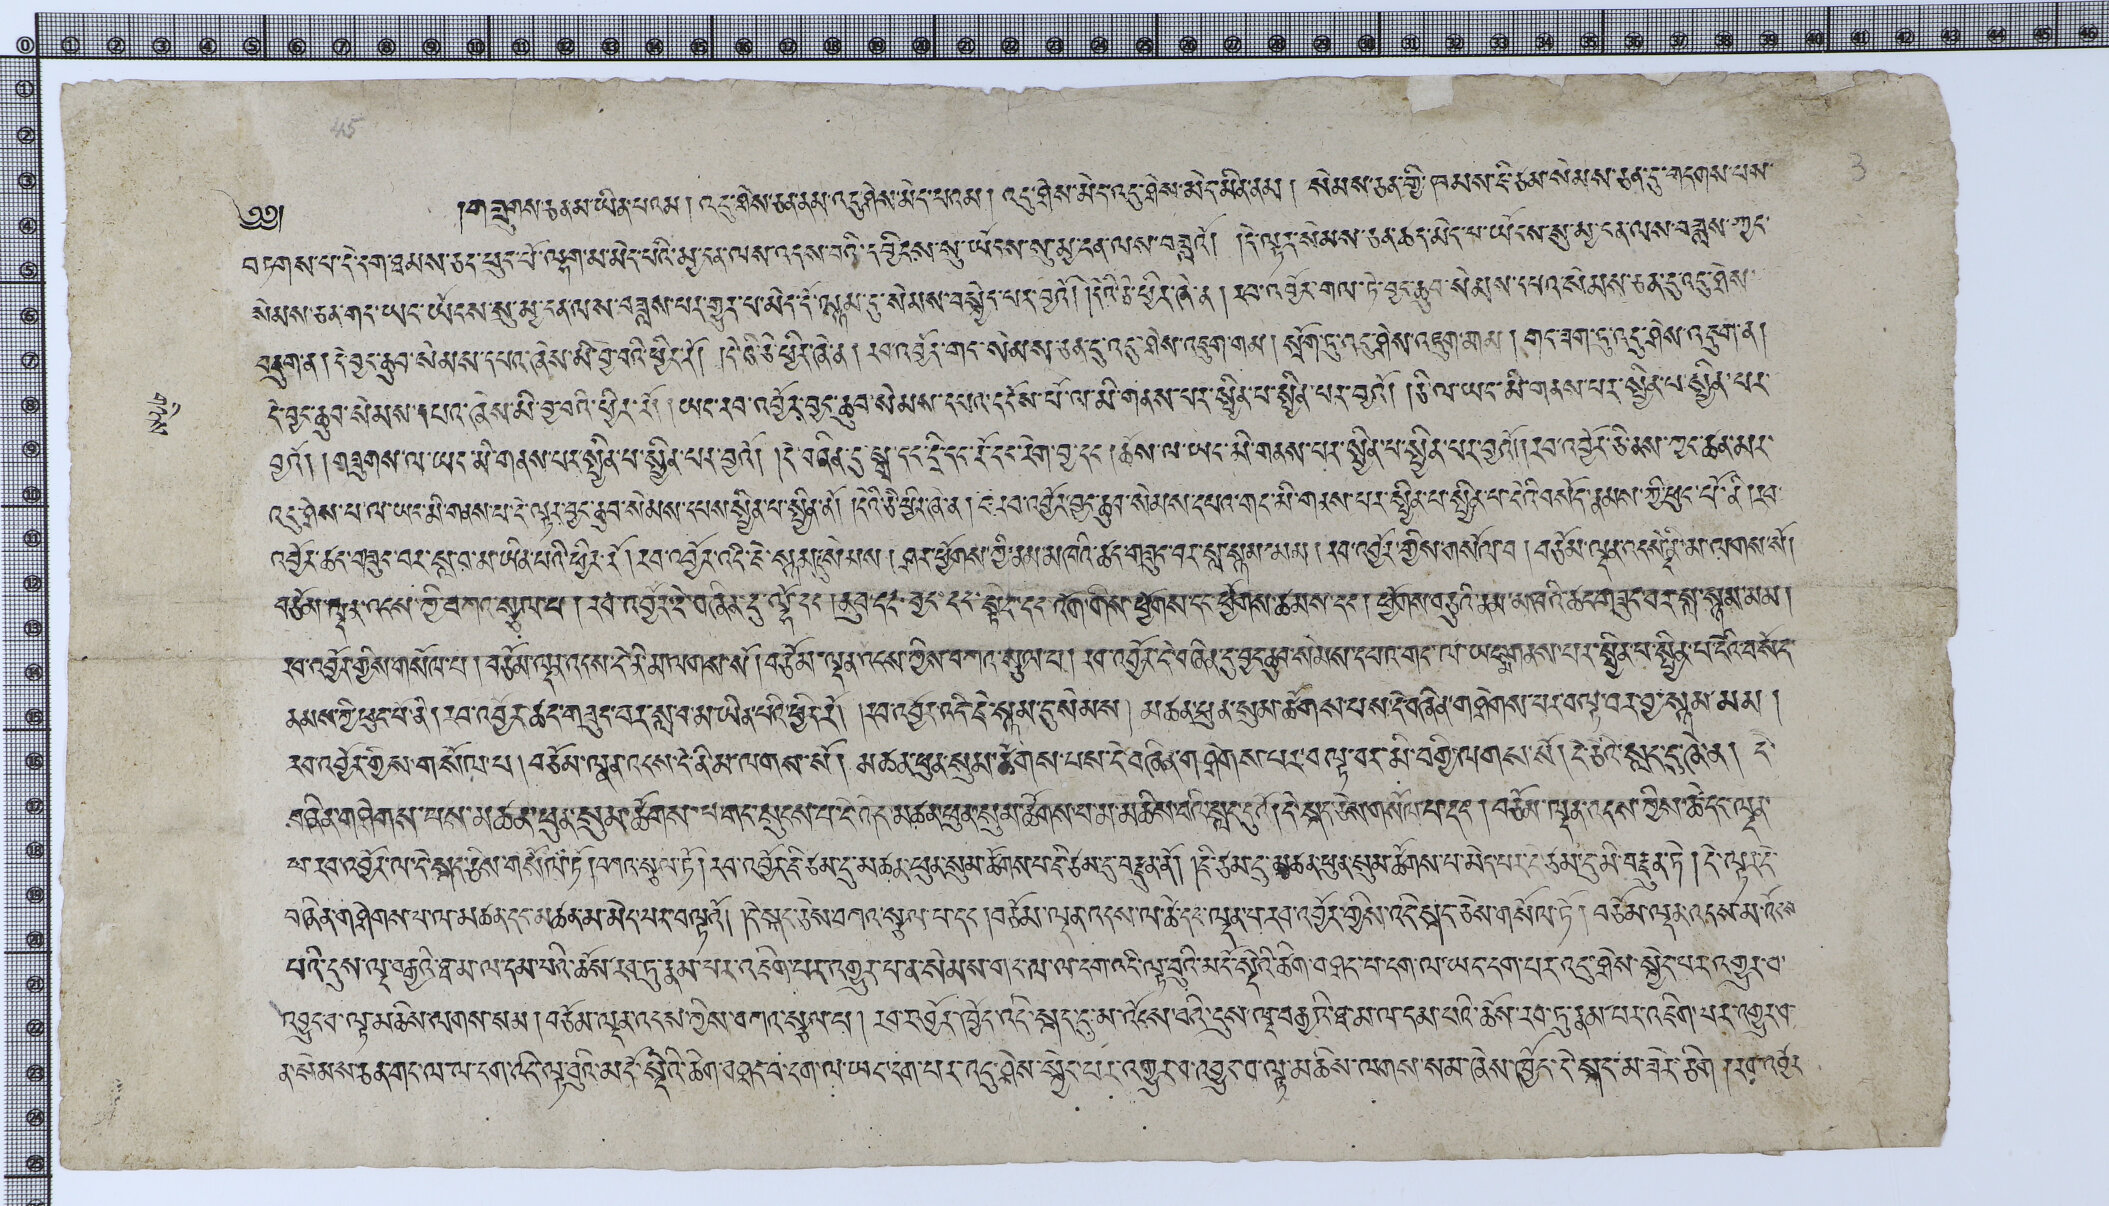 ༄༅། །གཟུགས་ཅན་མ་ཡིན་པའམ། འདུ་ཤེས་ཅན་ནམ་འདུ་ཤེས་མེད་པའམ། འདུ་ཤེས་མེད་འདུ་ཤེས་མེད་མིན་ནམ། སེམས་ཅན་གྱི་ཁམས་ཇི་ཙམ་སེམས་ཅན་དུ་གདགས་པས་
བཏགས་པ་དེ་དག་ཐམས་ཅད་ཕུང་པོ་ལྷག་མ་མེད་པའི་མྱ་ངན་ལས་འདས་བའི་དབྱིངས་སུ་ཡོངས་སུ་མྱ་ངན་ལས་བཟླའོ། །དེ་ལྟར་སེམས་ཅན་ཚད་མེད་པ་ཡོངས་སུ་མྱ་ངན་ལས་བཟླས་ཀྱང་
སེམས་ཅན་གང་ཡང་ཡོངས་སུ་མྱ་ངན་ལས་བཟླས་པར་གྱུར་པ་མེད་དོ་སྙམ་དུ་སེམས་བསྐྱེད་པར་བྱའོ། །དེའི་ཅི་ཕྱིར་ཞེ་ན། རབ་འབྱོར་གལ་ཏེ་བྱང་ཆུབ་སེམས་དཔའ་སེམས་ཅན་དུ་འདུ་ཤེས་
བཇུག་ན། དེ་བྱང་ཆུབ་སེམས་དཔའ་ཞེས་མི་བྱ་བའི་ཕྱིར་རོ། །དེ་ཅིའི་ཕྱིར་ཞེ་ན། རབ་འབྱོར་གང་སེམས་ཅན་དུ་འདུ་ཤེས་འཇུག་གམ། སྲོག་ཏུ་འདུ་ཤེས་འཇུག་གམ། གང་ཟག་ཏུ་འདུ་ཤེས་འཇུག་ན།
དེ་བྱང་ཆུབ་སེམས་དཔའ་ཞེས་མི་བྱ་བའི་ཕྱིར་རོ། །ཡང་རབ་འབྱོར་བྱང་ཆུབ་སེམས་དཔའ་དངོས་པོ་ལ་མི་གནས་པར་སྦྱིན་པ་སྦྱིན་པར་བྱའོ། །ཅི་ལ་ཡང་མི་གནས་པར་སྦྱིན་པ་སྦྱིན་པར་
བྱའོ། །གཟུགས་ལ་ཡང་མི་གནས་པར་སྦྱིན་པ་སྦྱིན་པར་བྱའོ། །དེ་བཞིན་དུ་སྒྲ་དང་དྲི་དང་རོ་དང་རེག་བྱ་དང། ཆོས་ལ་ཡང་མི་གནས་པར་སྦྱིན་པ་སྦྱིན་པར་བྱའོ། །རབ་འབྱོར་ཅི་ནས་ཀྱང་མཚན་མར་
འདུ་ཤེས་པ་ལ་ཡང་མི་གནས་པ་དེ་ལྟར་བྱང་ཆུབ་སེམས་དཔས་སྦྱིན་པ་སྦྱིན་ནོ། །དེའི་ཅི་ཕྱིར་ཞེ་ན། རབ་འབྱོར་བྱང་ཆུབ་སེམས་དཔའ་གང་མི་གནས་པར་སྦྱིན་པ་སྦྱིན་པ་དེའི་བསོད་ནམས་ཀྱི་ཕུང་པོ་ནི། རབ་
འབྱོར་ཚད་གཟུང་བར་སླ་བ་མ་ཡིན་པའི་ཕྱིར་རོ། རབ་འབྱོར་འདི་ཇི་སྙམ་དུ་སེམས། ཤར་ཕྱོགས་ཀྱི་ནམ་མཁའི་ཚད་གཟུང་བར་སླ་སྙམ་མམ། རབ་འབྱོར་གྱིས་གསོལ་བ། བཅོམ་ལྡན་འདས་དེ་ནི་མ་ལགས་སོ།
བཅོམ་ལྡན་འདས་ཀྱི་བཀའ་སྩལ་པ། རབ་འབྱོར་དེ་བཞིན་དུ་ལྷོ་དང། ནུབ་དང་བྱང་དང་སྟེང་དང་འོག་གིས་ཕྱོགས་དང་ཕྱོགས་མཚམས་དང། ཕྱོགས་བཅུའི་ནམ་མཁའི་ཚད་གཟུང་བར་སླ་སྙམ་མམ།
རབ་འབྱོར་གྱིས་གསོལ་པ། བཅོམ་ལྡན་འདས་དེ་ནི་མ་ལགས་སོ། བཅོམ་ལྡན་འདས་ཀྱིས་བཀའ་སྩལ་པ། རབ་འབྱོར་དེ་བཞིན་དུ་བྱང་ཆུབ་སེམས་དཔའ་གང་ལ་ཡང་མི་གནས་པར་སྦྱིན་པ་སྦྱིན་པ་དེའི་བསོད་
ནམས་ཀྱི་ཕུང་པོ་ནི། རབ་འབྱོར་ཚད་གཟུང་བར་སླ་བ་མ་ཡིན་པའི་ཕྱིར་རོ། །རབ་འབྱོར་འདི་ཇི་སྙམ་དུ་སེམས། མཚན་ཕུན་སུམ་ཚོགས་པས་དེ་བཞིན་གཤེགས་པར་བལྟ་བར་བྱ་སྙམ་མམ།
རབ་འབྱོར་གྱིས་གསོལ་པ། བཅོམ་ལྡན་འདས་དེ་ནི་མ་ལགས་སོ། མཚན་ཕུན་སུམ་ཚོགས་པས་དེ་བཞིན་གཤེགས་པར་བལྟ་བར་མི་བགྱི་ལགས་སོ། དེ་ཅིའི་སླད་དུ་ཞེ་ན། དེ་
བཞིན་གཤེགས་པས་མཚན་ཕུན་སུམ་ཚོགས་པ་གང་གསུངས་པ་དེ་ཉིད་མཚན་ཕུན་སུམ་ཚོགས་པ་མ་མཆིས་བའི་སླད་དུའོ། དེ་སྐད་ཅེས་གསོལ་པ་དང། བཅོམ་ལྡན་འདས་ཀྱིས་ཚེ་དང་ལྡན་
པ་རབ་འབྱོར་ལ་དེ་སྐད་ཅེས་བཀའ་སྩལ་ཏོ། རབ་འབྱོར་ཇི་ཙམ་དུ་མཚན་ཕུན་སུམ་ཚོགས་པ་དེ་ཙམ་དུ་བརྫུན་ནོ། །ཇི་ཙམ་དུ་མཚན་ཕུན་སུམ་ཚོགས་པ་མེད་པར་དེ་ཙམ་དུ་མི་བརྫུན་ཏེ། དེ་ལྟར་དེ་
བཞིན་གཤེགས་པ་ལ་མཚན་དང་མཚན་མ་མེད་པར་བལྟའོ། །དེ་སྐད་ཅེས་བཀའ་སྩལ་པ་དང། བཅོམ་ལྡན་འདས་ལ་ཚེ་དང་ལྡན་པ་རབ་འབྱོར་གྱིས་འདི་སྐད་ཅེས་གསོལ་ཏེ། བཅོམ་ལྡན་འདས་མ་འོངས་
པའི་དུས་ལྔ་བརྒྱའི་ཐ་མ་ལ་དམ་པའི་ཆོས་རབ་ཏུ་རྣམ་པར་འཇིག་པར་འགྱུར་པ་ན་སེམས་གང་ལ་ལ་དག་འདི་ལྟ་བུའི་མདོ་སྡེའི་ཚིག་བཤད་པ་དག་ལ་ཡང་དག་པར་འདུ་ཤེས་སྐྱེད་པར་འགྱུར་བ་
འབྱུང་བ་ལྟ་མཆིས་ལགས་སམ། བཅོམ་ལྡན་འདས་ཀྱིས་བཀའ་སྩལ་པ། རབ་འབྱོར་ཁྱོད་འདི་སྐད་དུ་མ་འོངས་བའི་དུས་ལྔ་བརྒྱའི་ཐ་མ་ལ་དམ་པའི་ཆོས་རབ་ཏུ་རྣམ་པར་འཇིག་པར་འགྱུར་བ་
ན་སེམས་ཅན་གང་ལ་ལ་དག་འདི་ལྟ་བུའི་མདོ་སྡེའི་ཚིག་བཤད་པ་དག་ལ་ཡང་དག་པར་འདུ་ཤེས་སྐྱེད་པར་འགྱུར་བ་འབྱུང་བ་ལྟ་མཆིས་ལགས་སམ་ཞེས་ཁྱོད་དེ་སྐད་མ་ཟེར་ཅིག །རབ་འབྱོར་
45
3